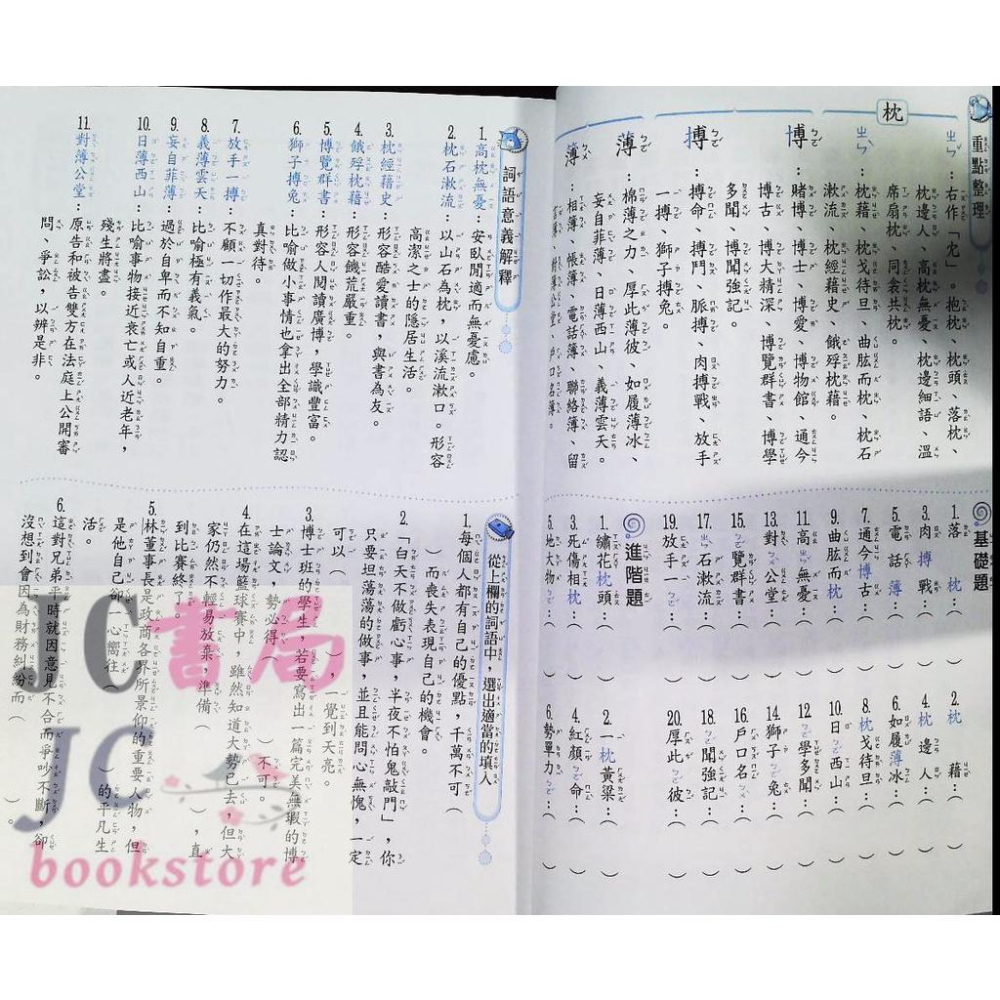 重點整理
枕
ㄓㄣˇ：右作「冘」。抱枕、枕頭、落枕、
枕邊人、高枕無憂、枕邊細語、溫
席扇枕、同衾共枕。
ㄓㄣˋ：枕藉、枕戈待旦、曲肱而枕、枕石
漱流、枕經藉史、餓殍枕藉。
博ㄅㄛˊ：賭博、博士、博愛、博物館、通今
博古、博大精深、博覽群書、博學
多聞、博聞強記。
搏ㄅㄛˊ：搏命、搏鬥、脈搏、肉搏戰、放手
一搏、獅子搏兔。
薄ㄅㄛˊ：棉薄之力、厚此薄彼、如履薄冰、
妄自菲薄、日薄西山、義薄雲天。
簿ㄅㄨˋ：相簿、帳簿、電話簿、聯絡簿、留
言簿、對簿公堂、戶口名簿。
基礎題
1. 落枕：（　）
2. 枕藉：（　）
3. 肉搏戰：（　）
4. 枕邊人：（　）
5. 電話簿：（　）
6. 如履薄冰：（　）
7. 通今博古：（　）
8. 枕戈待旦：（　）
9. 曲肱而枕：（　）
10. 日ㄅㄛˊ西山：（　）
11. 高ㄓㄣˇ無憂：（　）
12. ㄅㄛˊ學多聞：（　）
13. 對ㄅㄨˋ公堂：（　）
14. 獅子ㄅㄛˊ兔：（　）
15. ㄅㄛˊ覽群書：（　）
16. 戶口名ㄅㄨˋ：（　）
17. ㄓㄣˋ石漱流：（　）
18. ㄅㄛˊ聞強記：（　）
19. 放手一ㄅㄛˊ：（　）
20. 厚此ㄅㄛˊ彼：（　）
進階題
1. 繡花枕頭：（　）
2. 一枕黃粱：（　）
3. 死傷相枕：（　）
4. 紅顏ㄅㄛˊ命：（　）
5. 地大物ㄅㄛˊ：（　）
6. 勢單力ㄅㄛˊ：（　）
詞語意義解釋
1. 高枕無憂：安臥閒適而無憂慮。
2. 枕石漱流：以山石為枕，以溪流漱口。形容
高潔之士的隱居生活。
3. 枕經藉史：形容酷愛讀書，與書為友。
4. 餓殍枕藉：形容饑荒嚴重。
5. 博覽群書：形容人閱讀廣博，學識豐富。
6. 獅子搏兔：比喻做小事情也拿出全部精力認
真對待。
7. 放手一搏：不顧一切作最大的努力。
8. 義薄雲天：比喻極有義氣。
9. 妄自菲薄：過於自卑而不知自重。
10. 日薄西山：比喻事物接近衰亡或人近老年，
殘生將盡。
11. 對簿公堂：原告和被告雙方在法庭上公開審
問、爭訟，以辨是非。
從上欄的詞語中，選出適當的填入
1. 每個人都有自己的優點，千萬不可（
）而喪失表現自己的機會。
2. 「白天不做虧心事，半夜不怕鬼敲門」，你
只要坦蕩蕩的做事，並且能問心無愧，一定
可以（　），一覺到天亮。
3. 博士班的學生，若要寫出一篇完美無瑕的博
士論文，勢必得（　）不可。
4. 在這場籃球賽中，雖然知道大勢已去，但大
家仍然不輕易放棄，準備（　），直
到比賽終了。
5. 林董事長是政商各界所景仰的重要人物，但
是他自己卻心嚮往（　）的平凡生
活。
6. 這對兄弟平時就因意見不合而爭吵不斷，卻
沒想到會因為財務糾紛而（　）。
JC書局
JC
bookstore